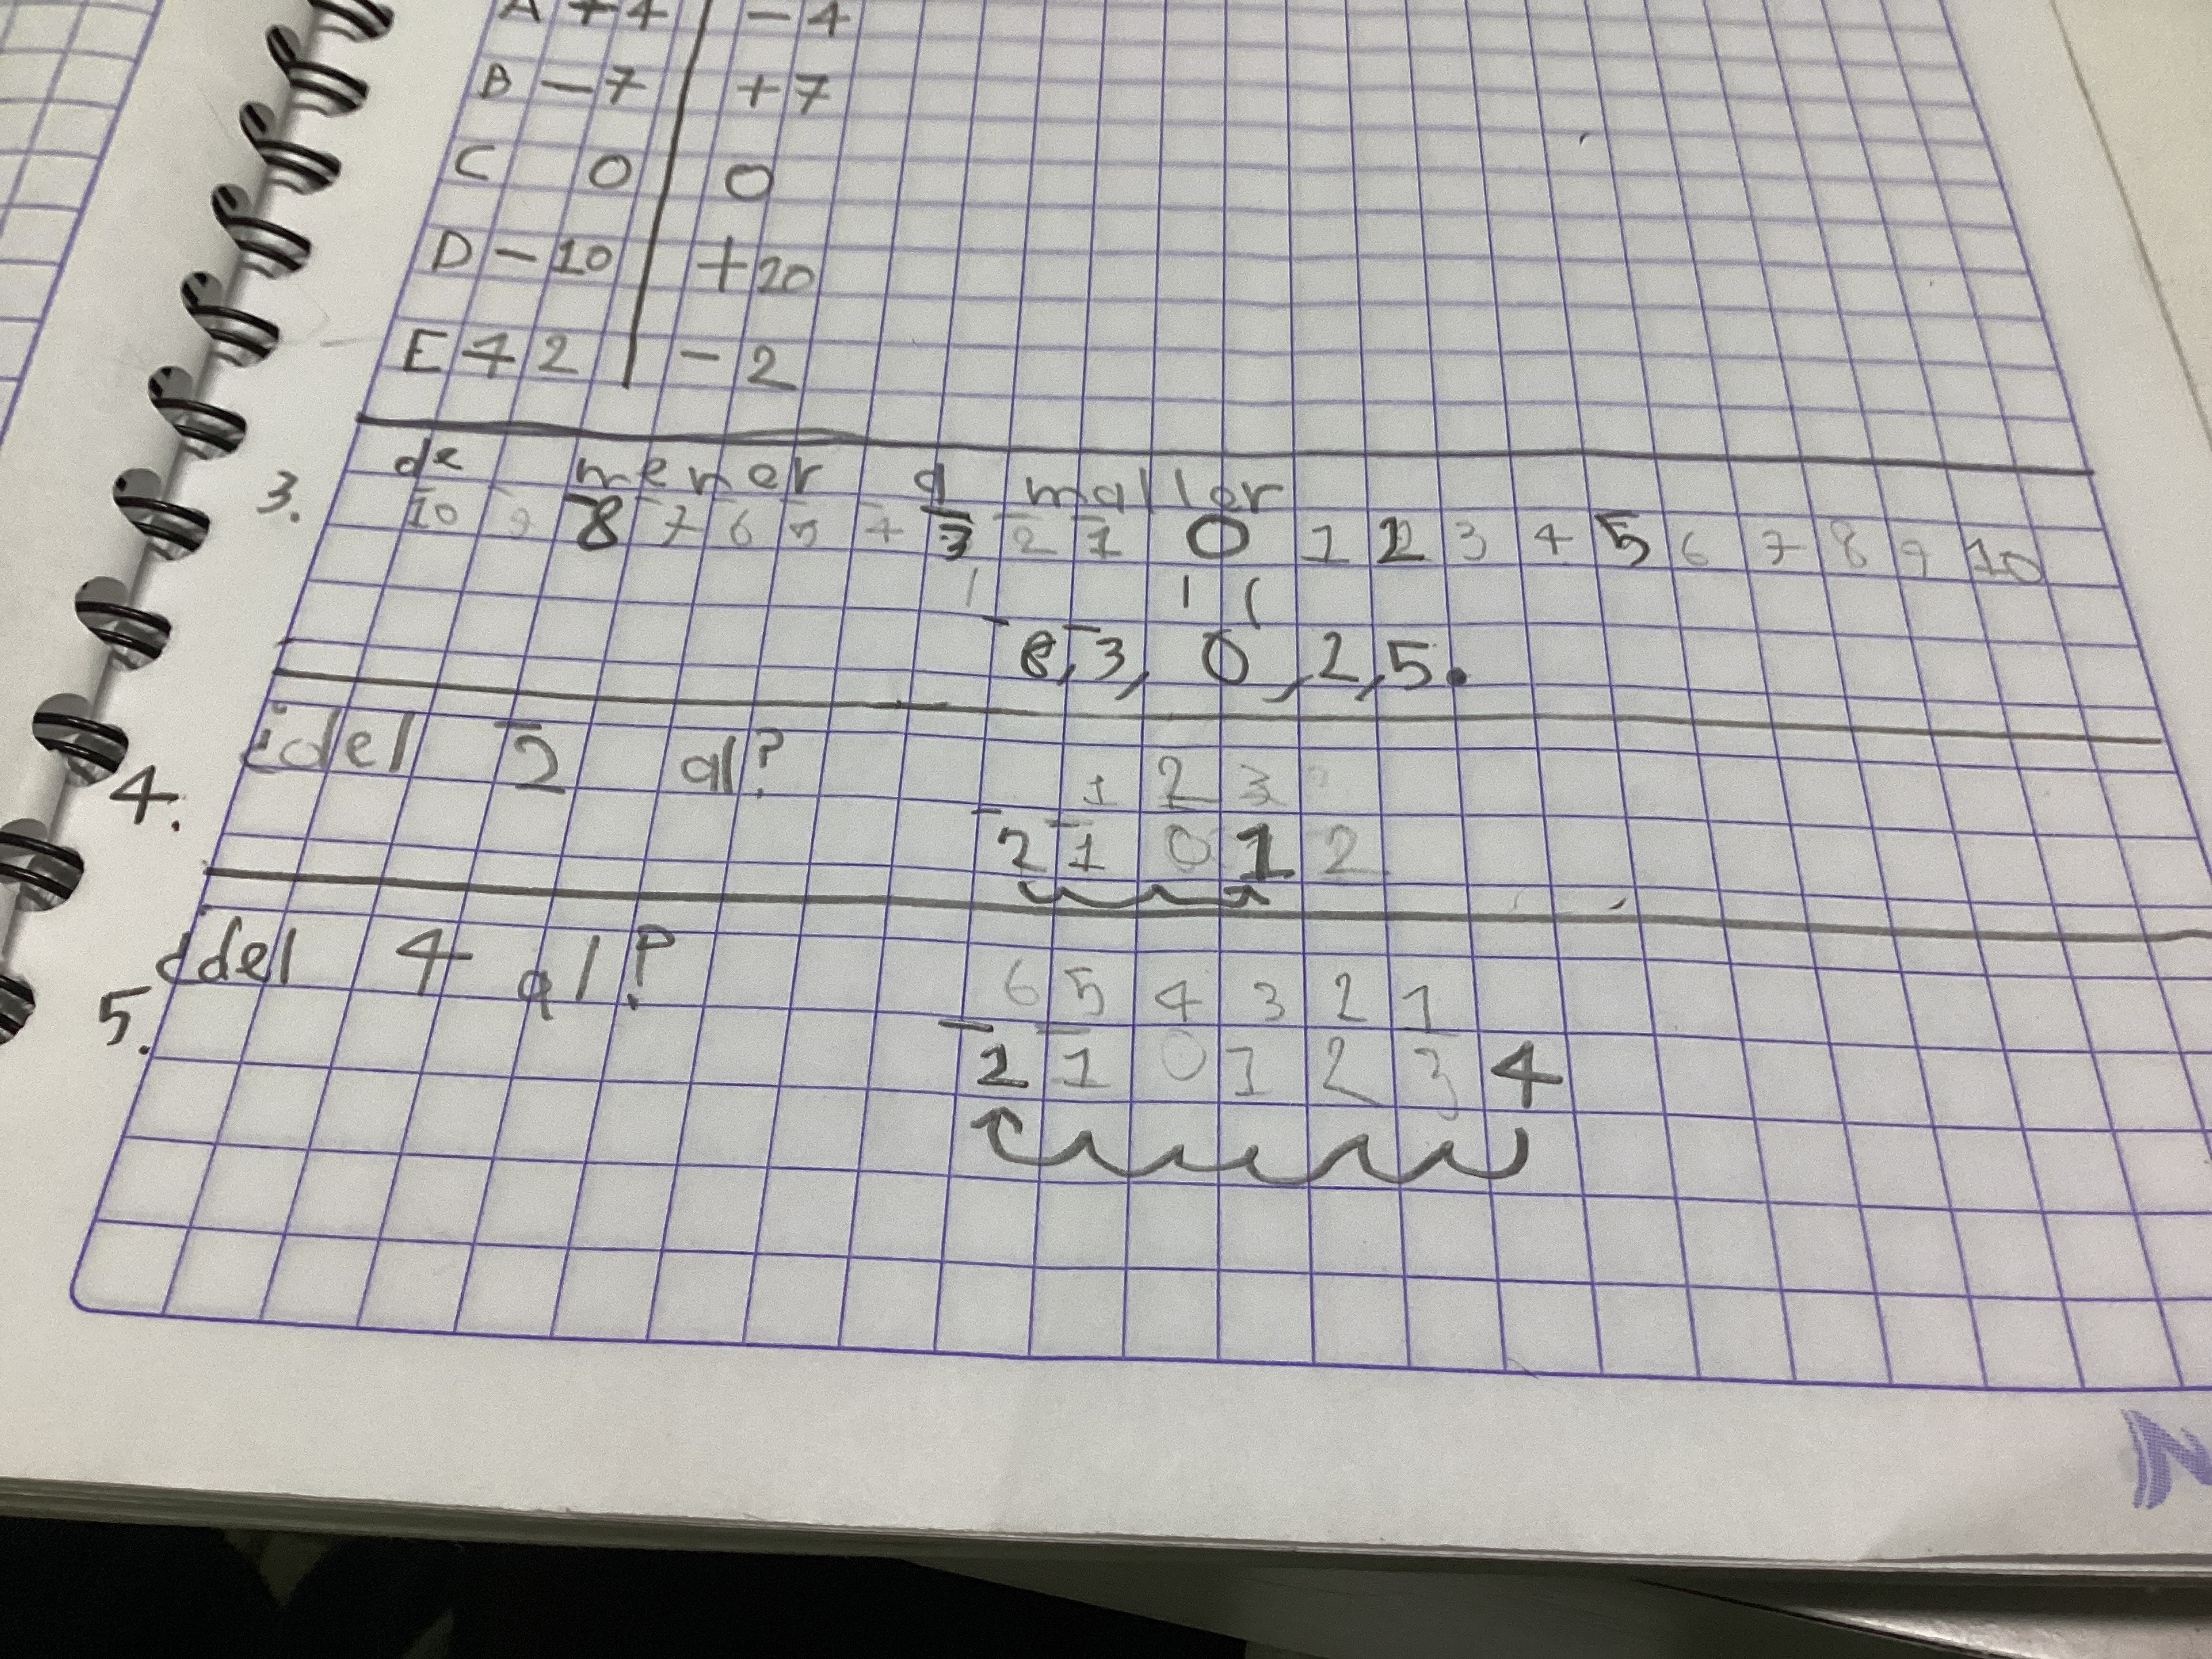 A +4 | -4
B -7 | +7
C 0 | 0
D -10 | +20
E +2 | -2
3. de menor a mallor
-10 -9 -8 -7 -6 -5 -4 -3 -2 -1 0 1 2 3 4 5 6 7 8 9 10
-8, -3, 0, 2, 5.
4. ¿del -2 al?
1 2 3
-2 -1 0 1 2
5. ¿del 4 al?
6 5 4 3 2 1
-2 -1 0 1 2 3 4
N